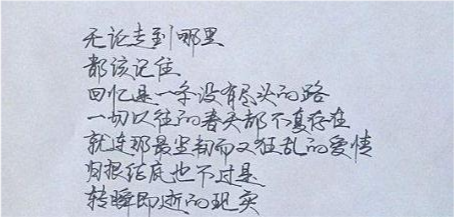 无论走到哪里
都该记住
回忆是一条没有尽头的路
一切以往的春天都不复存在
就连那最坚韧而又狂乱的爱情
归根结底也不过是
转瞬即逝的现实